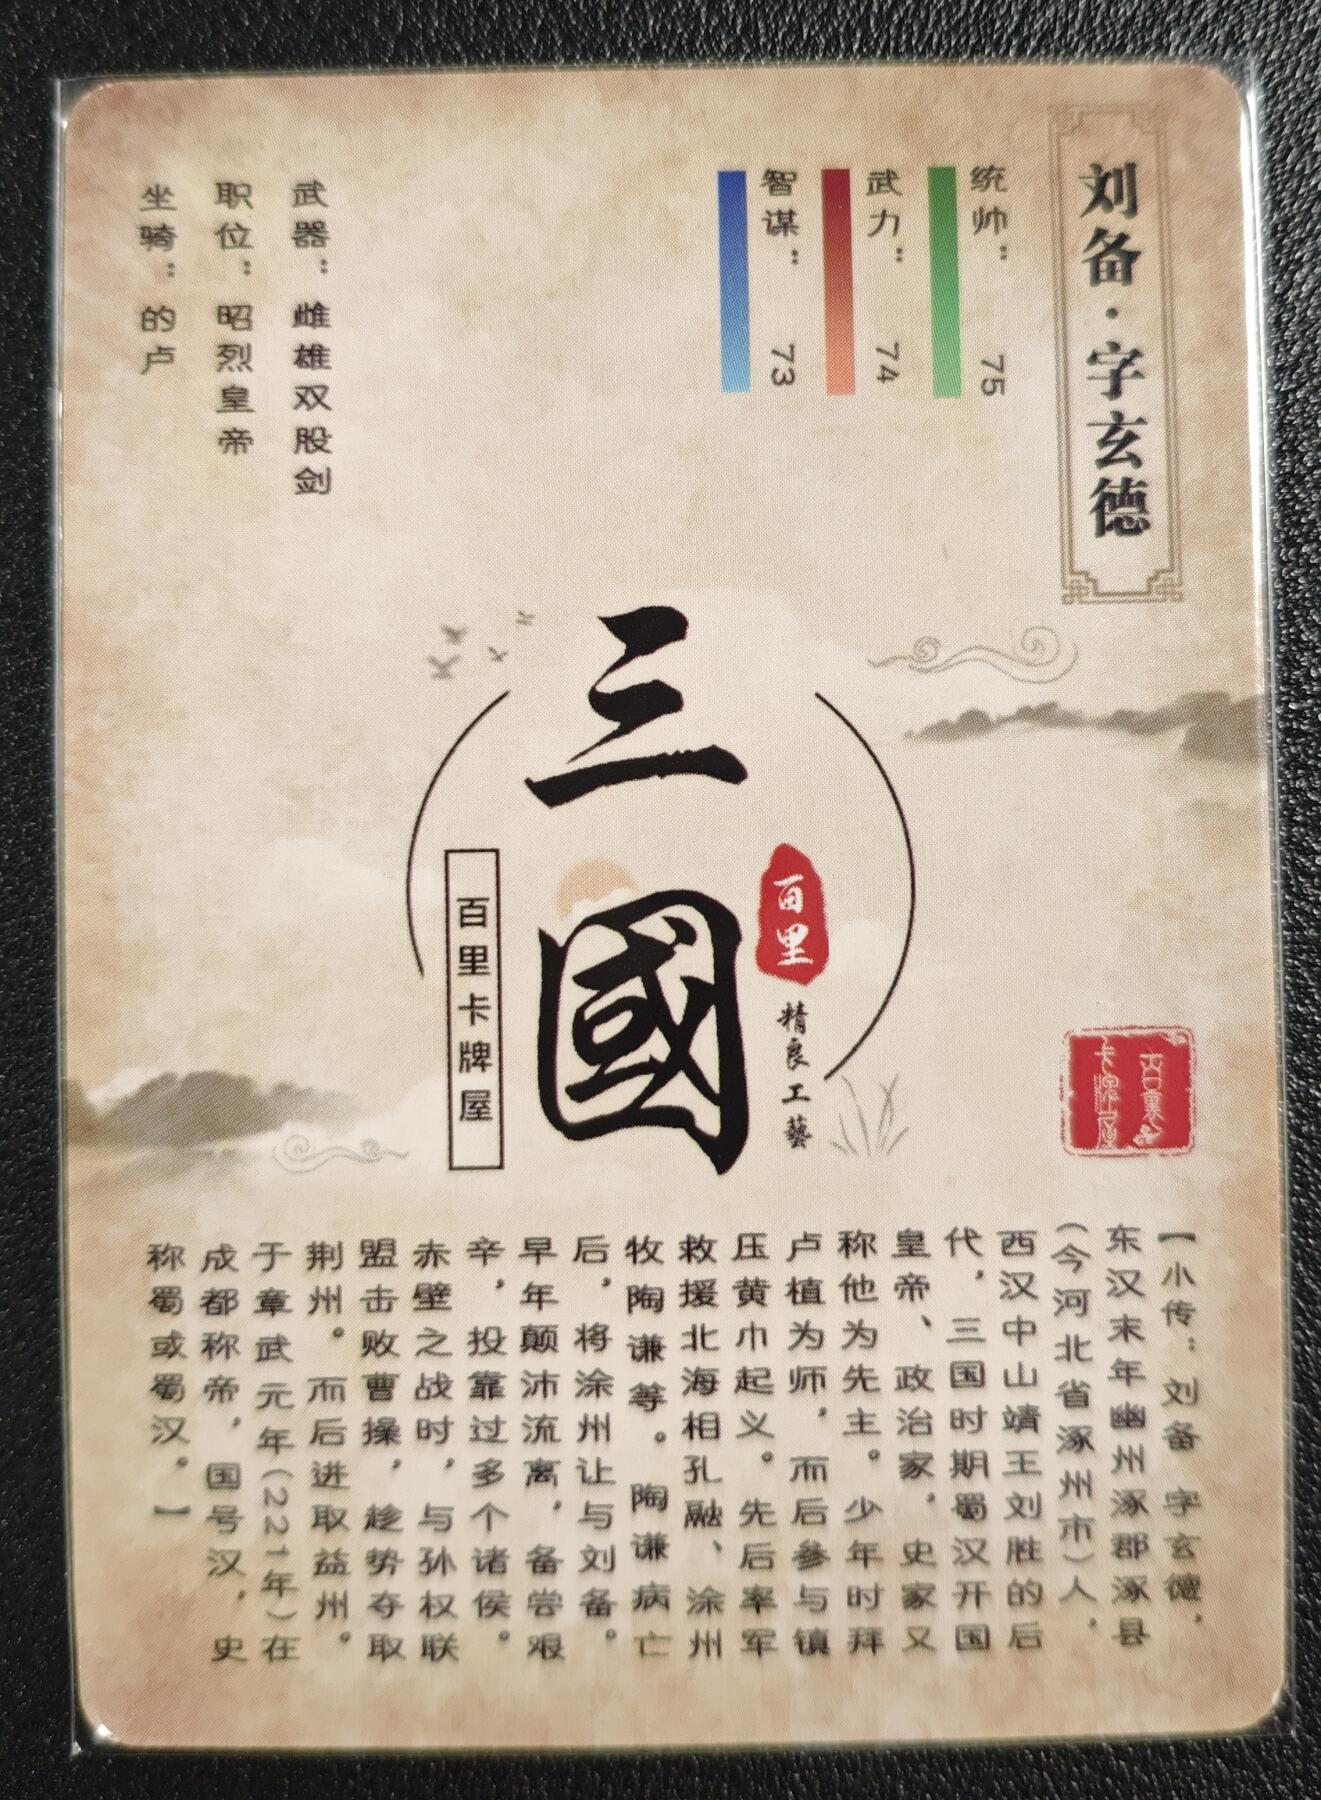 刘备·字玄德
统帅： 75
武力： 74
智谋： 73
武器：雌雄双股剑
职位：昭烈皇帝
坐骑：的卢
三國
百里
精良工藝
百里卡牌屋
【小传：刘备 字玄德，
东汉末年幽州涿郡涿县
（今河北省涿州市）人，
西汉中山靖王刘胜的后
代，三国时期蜀汉开国
皇帝、政治家，史家又
称他为先主。少年时拜
卢植为师，而后参与镇
压黄巾起义。先后率军
救援北海相孔融、涂州
牧陶谦等。陶谦病亡
后，将涂州让与刘备。
早年颠沛流离，备尝艰
辛，投靠过多个诸侯。
赤壁之战时，与孙权联
盟击败曹操，趁势夺取
荆州。而后进取益州。
于章武元年（221年）在
成都称帝，国号汉，史
称蜀或蜀汉。】